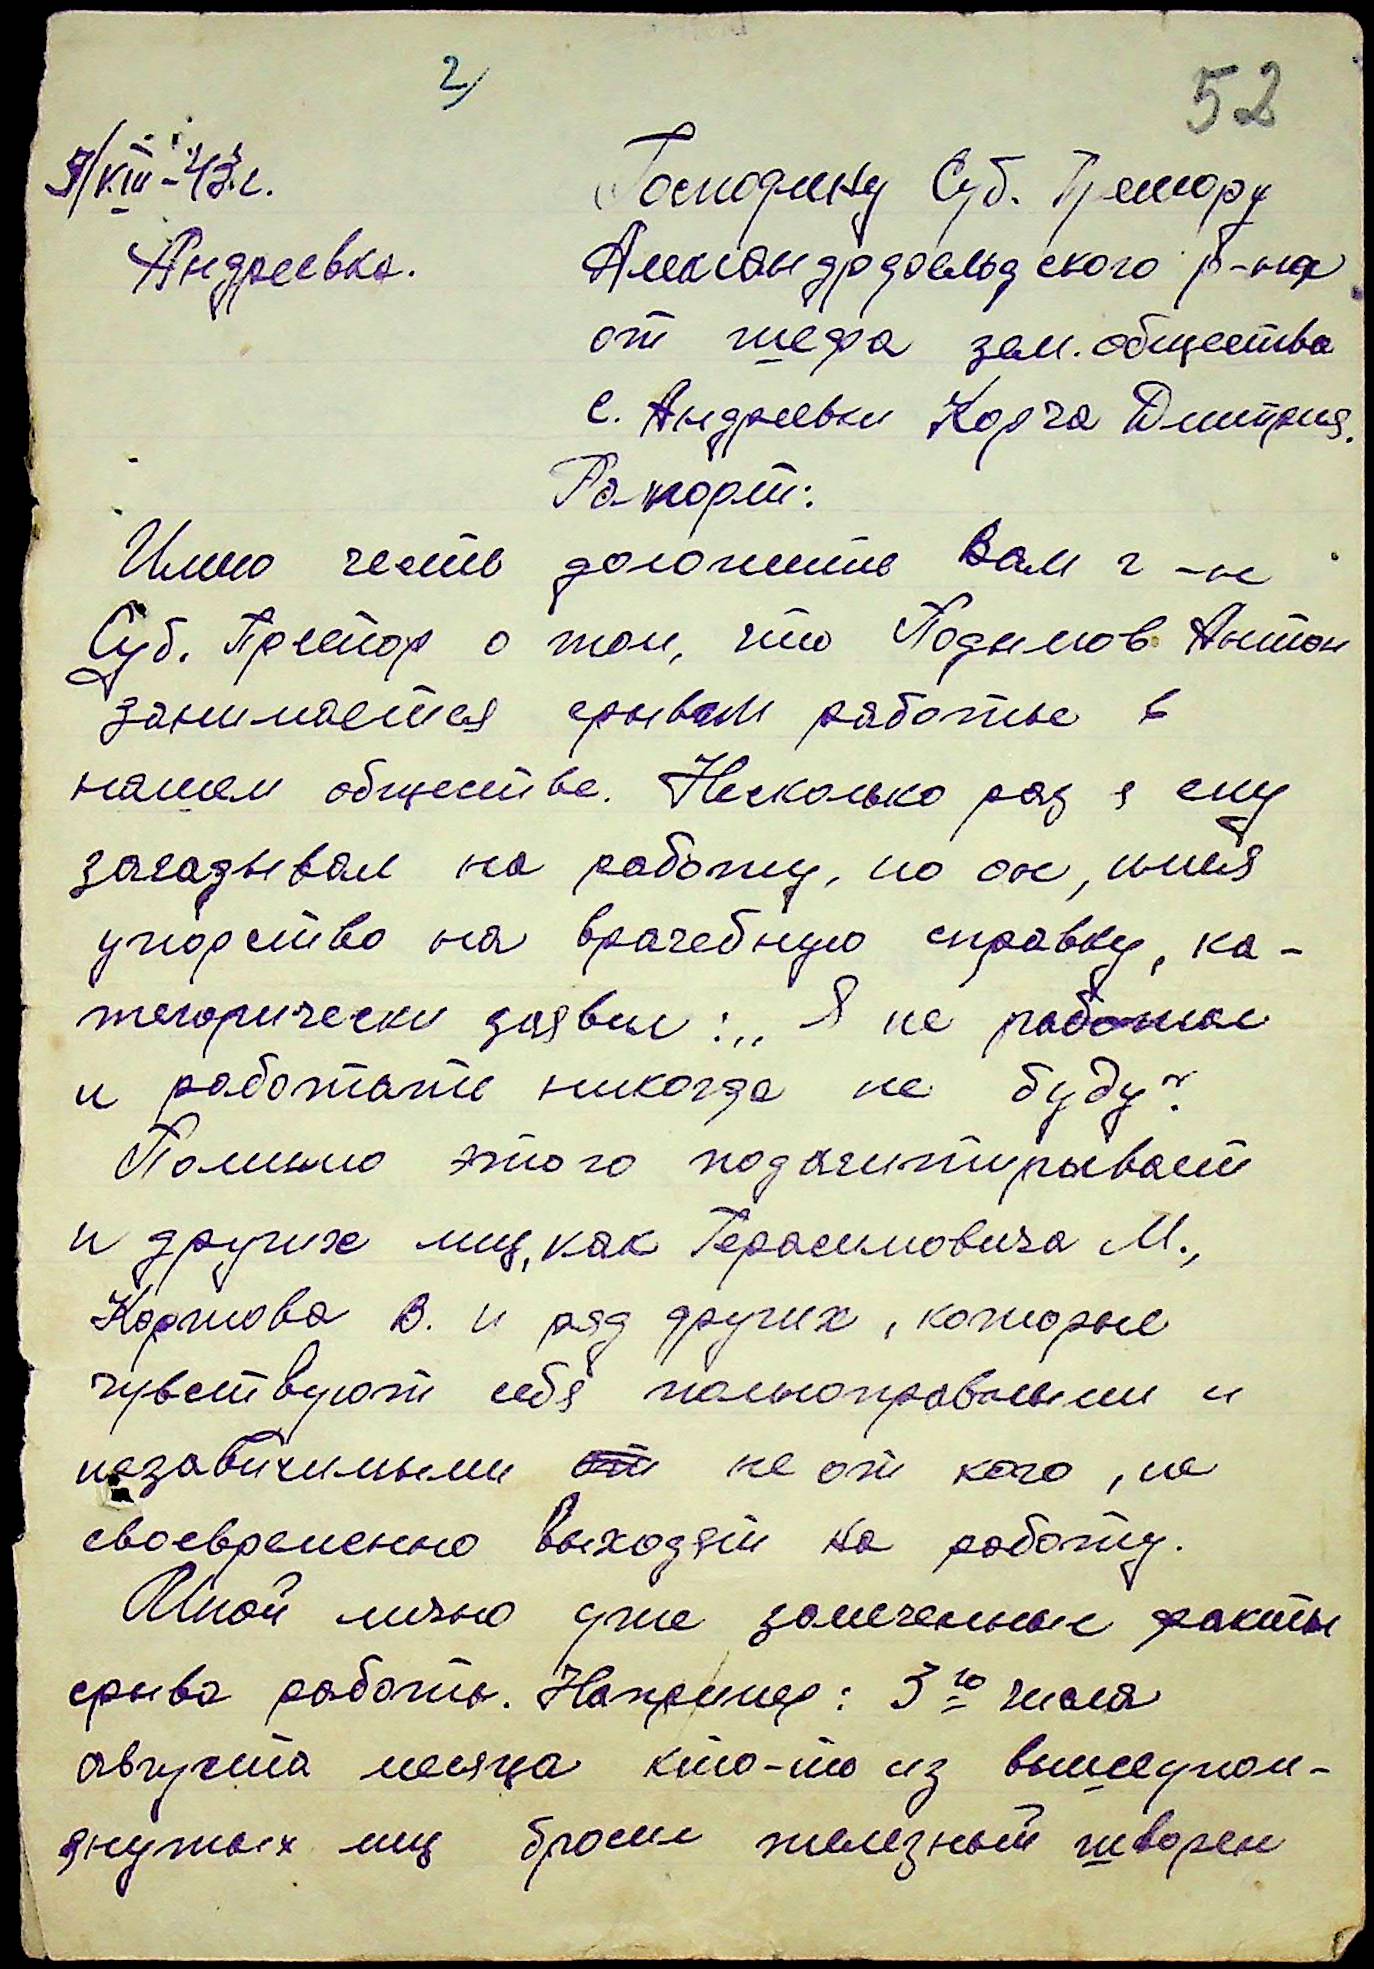 2)
52
9/VIII-43 г.
Господину Суб. Претору
Андреевка.
Александрфельдского р-на
от шефа зем. общества
с. Андреевки Корча Дмитрия.
Рапорт:
Имею честь доложить Вам г-н
Суб. Претор о том, что Подымов Антон
занимается срывом работы в
нашем обществе. Несколько раз я ему
загадывал на работу, но он, имея
упорство на врачебную справку, ка-
тегорически заявил: „Я не работал
и работать никогда не буду“.
Помимо этого подагитырывает
и других лиц, как Герасимовича М.,
Кортова В. и ряд других, которые
чувствуют себя полноправными и
незавичимыми от не от кого, не
своевременно выходят на работу.
Мной лично уже замеченные факты
срыва работы. Например: 3го числа
августа месяца кто-то из вышеупом-
янутых лиц бросил железный шворен